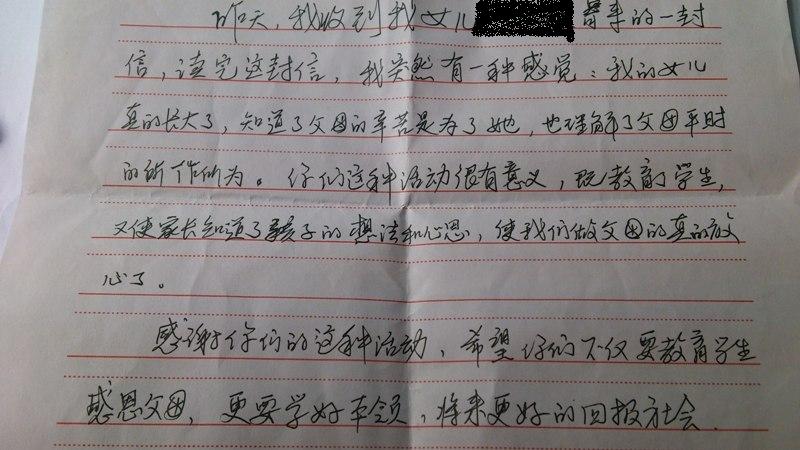 昨天,我收到我女儿 寄来的一封
信,读完这封信,我突然有一种感觉:我的女儿
真的长大了,知道了父母的辛苦是为了她,也理解了父母平时
的所作所为。你们这种活动很有意义,既教育了学生,
又使家长知道了孩子的想法和心思,使我们做父母的真的放
心了。
感谢你们的这种活动,希望你们不仅要教育学生
感恩父母,更要学好本领,将来更好的回报社会.